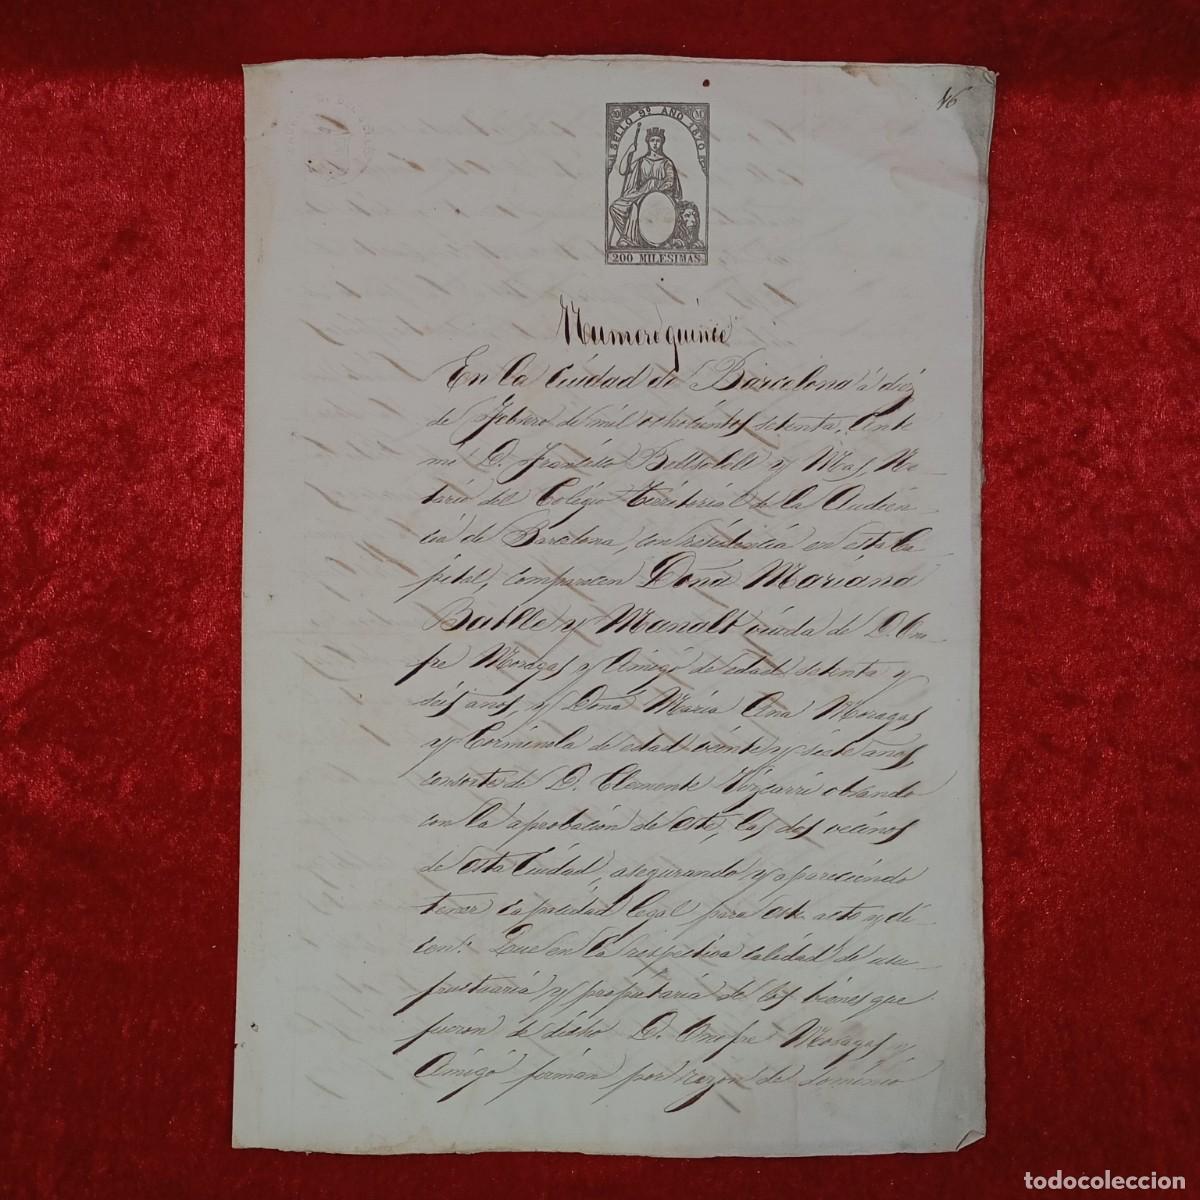 46
SELLO 9º AÑO 1870
200 MILESIMAS
Numero quince
En la Ciudad de Barcelona á diez
de Febrero de mil ochocientos setenta. Ante
mi D. Francisco Bellsolell y Mas, No-
tario del Colégio Territorial de la Audien-
cia de Barcelona, con residencia en esta Ca-
pital, comparecen Doña Mariana
Batlle y Manalt viuda de D. Ono-
fre Moragas y Amigó de edad setenta y
seis años y Doña Maria Ana Moragas
y Corminola de edad veinte y siete años,
consorte de D. Clemente Vizcarri obrando
con la aprobacion de este, los dos vecinos
de esta Ciudad, asegurando y apareciendo
tener capacidad legal para este acto y di-
cen: Que en la respectiva calidad de usu-
fructuaria y propietaria de los bienes que
fueron de dicho D. Onofre Moragas y
Amigó firman por razon de dominio
todocoleccion